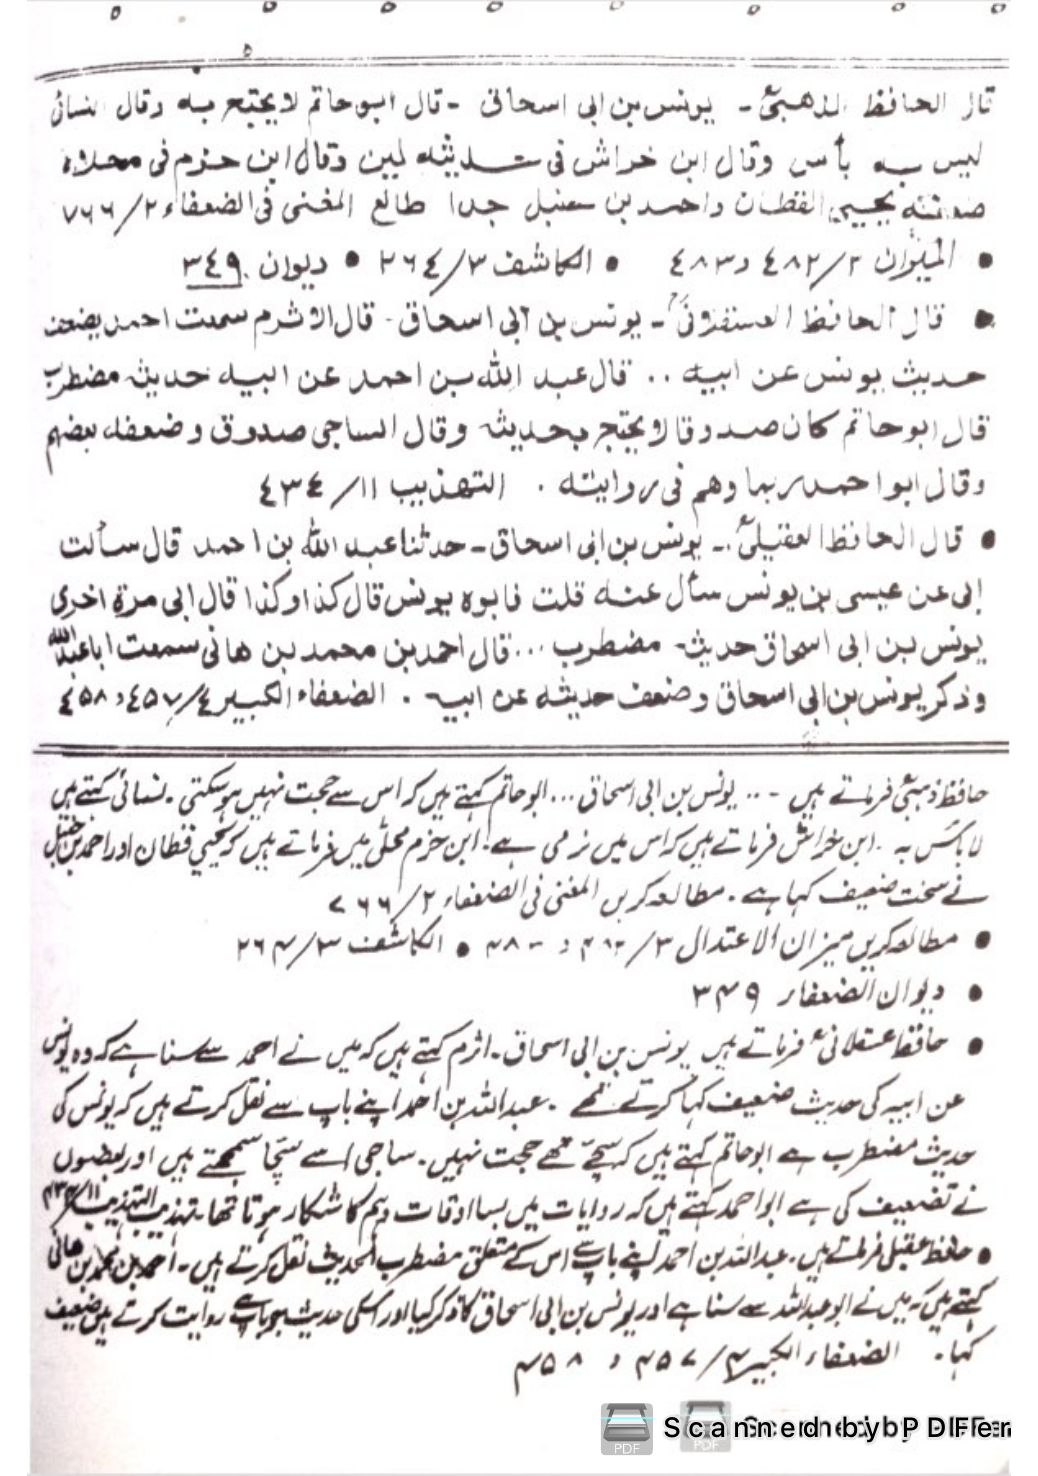 قال الحافظ الذهبیؒ - یونس بن ابی اسحاق - قال ابوحاتم لا یحتج به وقال النسائی
لیس به بأس وقال ابن خراش فی حدیثه لین وقال ابن حزم فی محلاه
ضعفه یحیی القطان واحمد بن حنبل جدا طالع المغنی فی الضعفاء ٢/٧٦٦
• المیزان ٤٨٢/٢ و ٤٨٣ • الکاشف ٢٦٤/٣ • دیوان ٣٤٩
• قال الحافظ العسقلانیؒ - یونس بن ابی اسحاق - قال الاثرم سمعت احمد یضعف
حدیث یونس عن ابیه .. قال عبد الله بن احمد عن ابیه حدیثه مضطرب
قال ابوحاتم کان صدوقا لا یحتج بحدیثه وقال الساجی صدوق وضعفه بعضهم
وقال ابو احمد ربما وهم فی روایته . التهذیب ١١/٤٣٤
• قال الحافظ العقیلیؒ - یونس بن ابی اسحاق - حدثنا عبد الله بن احمد قال سألت
ابی عن عیسی بن یونس سأل عنه قلت فابوه یونس قال کذا وکذا قال ابی مرة اخری
یونس بن ابی اسحاق حدیثه مضطرب ... قال احمد بن محمد بن هانی سمعت ابا عبد الله
وذکر یونس بن ابی اسحاق وضعف حدیثه عن ابیه . الضعفاء الکبیر ٤/٤٥٧ و ٤٥٨
حافظ ذہبیؒ فرماتے ہیں - .. یونس بن ابی اسحاق ... ابوحاتم کہتے ہیں کہ اس سے حجت نہیں ہو سکتی . نسائی کہتے ہیں
لا بأس بہ . ابن خراش فرماتے ہیں کہ اس میں نرمی ہے . ابن حزم محلی میں فرماتے ہیں کہ یحیی قطان اور احمد بن حنبل
نے سخت ضعیف کہا ہے . مطالعہ کریں المغنی فی الضعفاء ٢/٧٦٦
• مطالعہ کریں میزان الاعتدال • الکاشف ٢٦٤/٣
• دیوان الضعفاء ٣٤٩
• حافظ عسقلانیؒ فرماتے ہیں یونس بن ابی اسحاق . اثرم کہتے ہیں کہ میں نے احمد سے سنا ہے کہ وہ یونس
عن ابیہ کی حدیث ضعیف کہا کرتے تھے . عبد اللہ بن احمد اپنے باپ سے نقل کرتے ہیں کہ یونس کی
حدیث مضطرب ہے ابوحاتم کہتے ہیں کہ سچے تھے حجت نہیں . ساجی اسے سچا سمجھتے ہیں اور بعضوں
نے تضعیف کی ہے ابو احمد کہتے ہیں کہ روایات میں بسا اوقات وہم کا شکار ہوتا تھا . تہذیب التہذیب ١١/٤٣٤
• حافظ عقیلی فرماتے ہیں . عبد اللہ بن احمد اپنے باپ سے اس کے متعلق مضطرب الحدیث نقل کرتے ہیں . احمد بن محمد بن ہانی
کہتے ہیں کہ میں نے ابو عبد اللہ سے سنا ہے اور یونس بن ابی اسحاق کا ذکر کیا اور اسکی حدیث جو باپ سے روایت کرتے ہیں ضعیف
کہا . الضعفاء الکبیر ٤/٤٥٧ و ٤٥٨